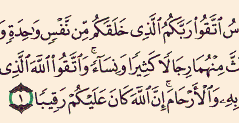 سُ ٱتَّقُوا۟ رَبَّكُمُ ٱلَّذِى خَلَقَكُم مِّن نَّفْسٍ وَٰحِدَةٍ وَ
ثَّ مِنْهُمَا رِجَالًا كَثِيرًا وَنِسَآءً ۚ وَٱتَّقُوا۟ ٱللَّهَ ٱلَّذِى
بِهِۦ وَٱلْأَرْحَامَ ۚ إِنَّ ٱللَّهَ كَانَ عَلَيْكُمْ رَقِيبًا ١